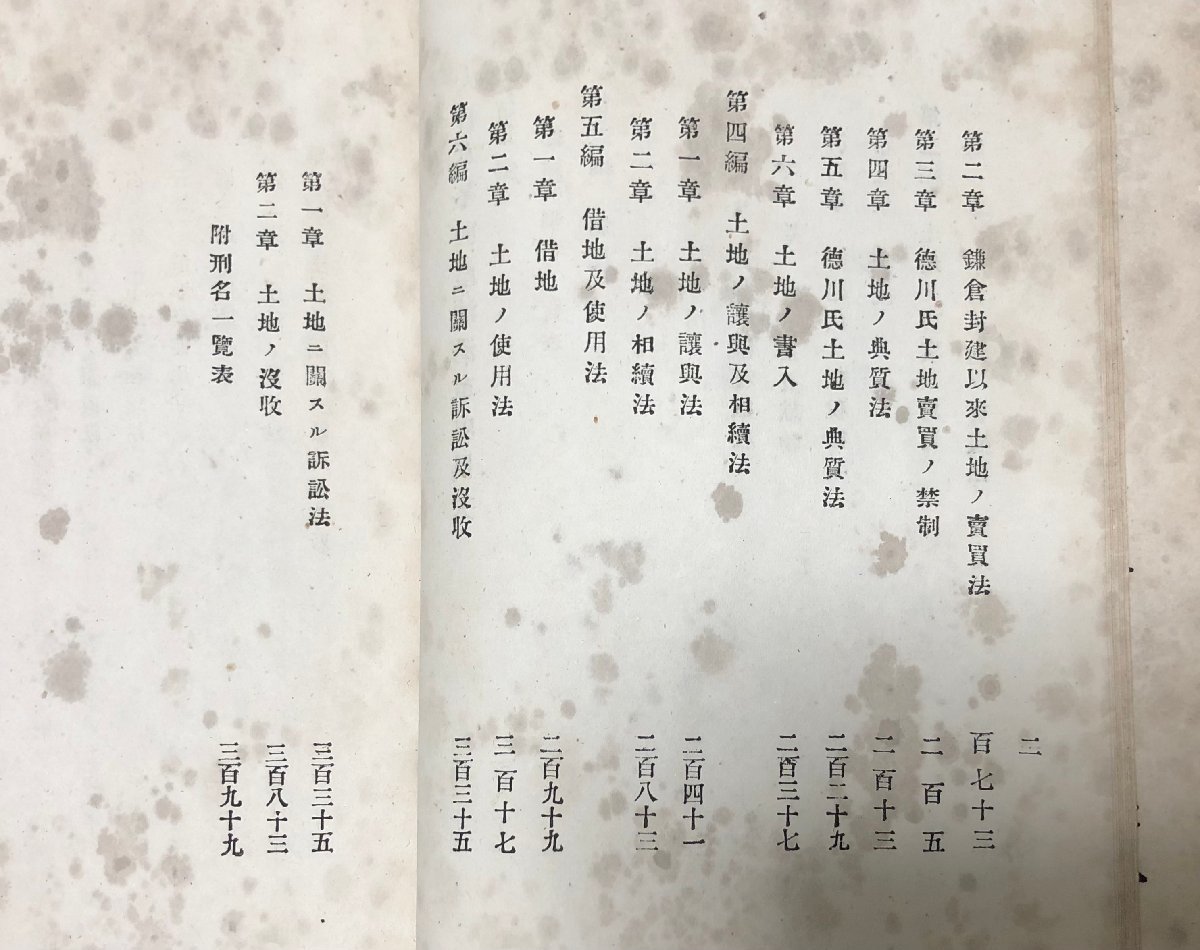 二
第二章　鎌倉封建以來土地ノ賣買法　百七十三
第三章　德川氏土地賣買ノ禁制　二百五
第四章　土地ノ典質法　二百十三
第五章　德川氏土地ノ典質法　二百二十九
第六章　土地ノ書入　二百三十七
第四編　土地ノ讓與及相續法
第一章　土地ノ讓與法　二百四十一
第二章　土地ノ相續法　二百八十三
第五編　借地及使用法
第一章　借地　二百九十九
第二章　土地ノ使用法　三百十七
第六編　土地ニ關スル訴訟及沒收　三百三十五
第一章　土地ニ關スル訴訟法　三百三十五
第二章　土地ノ沒收　三百八十三
附刑名一覽表　三百九十九